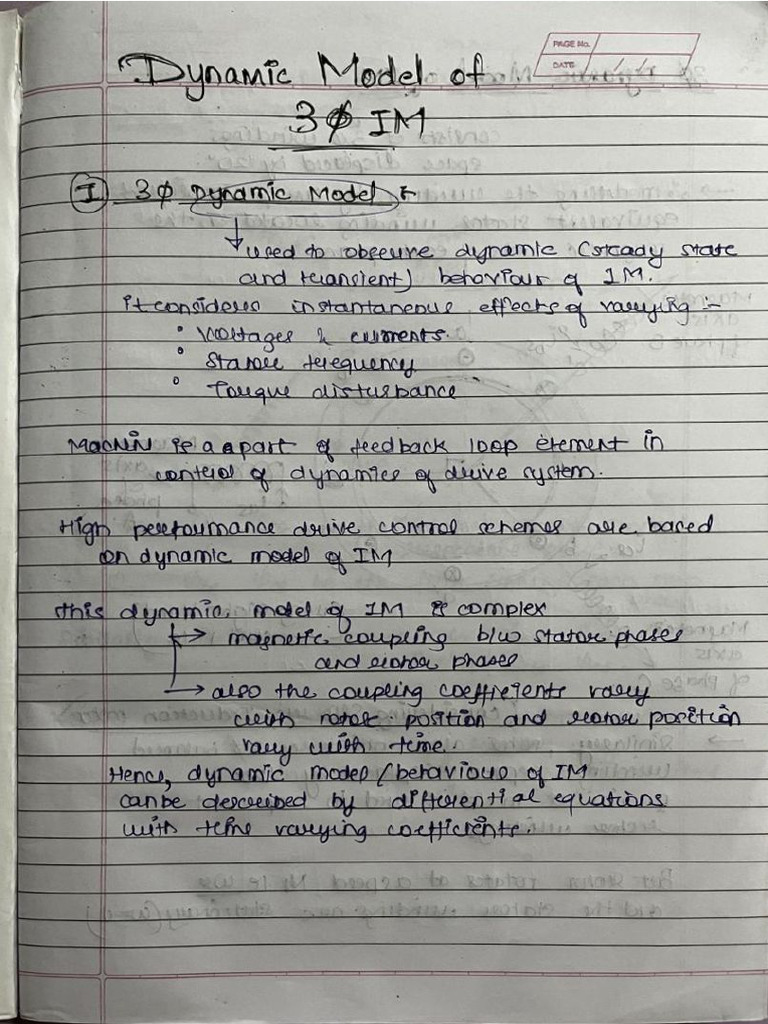 PAGE No.
DATE / /
Dynamic Model of
3ϕ IM
I 3ϕ Dynamic Model :-
used to observe dynamic (steady state
and transient) behaviour of IM.
it considers instantaneous effects of varying :-
• Voltages & currents.
• Stator frequency
• Torque disturbance
Machin is a a part of feedback loop element in
control of dynamics of drive system.
High performance drive control schemes are based
on dynamic model of IM
this dynamic model of IM is complex
→ magnetic coupling b/w stator phases
and rotor phases
→ also the coupling coefficients vary
with rotor position and rotor position
vary with time.
Hence, dynamic model / behaviour of IM
can be described by differential equations
with time varying coefficients.